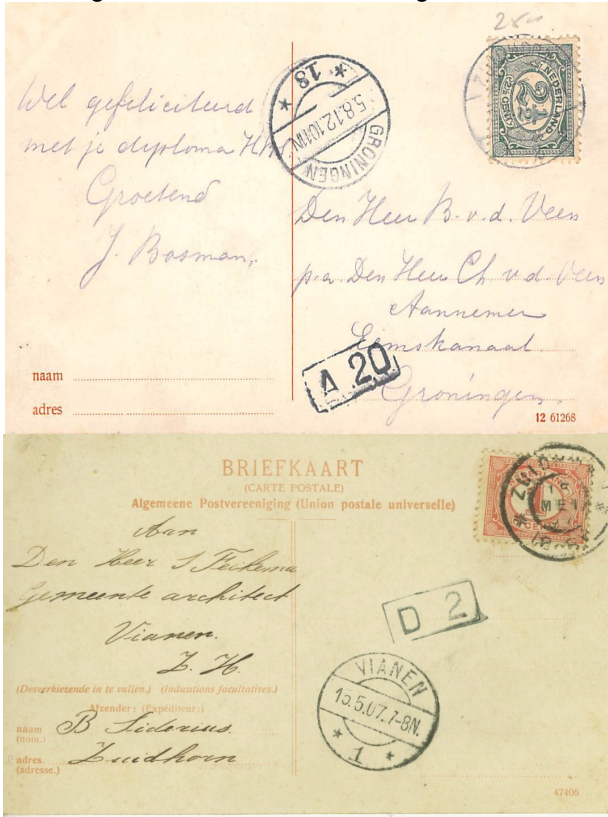 25
Wel gefeliciteerd
met je diploma
Groetend
J. Bosman.
18
5.8.12.10-11N
GRONINGEN
NEDERLAND
2½
Den Heer B. v. d. Veen
p.a. Den Heer Ch v d Veen
Aannemer
Eemskanaal
Groningen.
A 20
naam
adres
12 61268
BRIEFKAART
(CARTE POSTALE)
Algemeene Postvereeniging (Union postale universelle)
Aan
Den Heer S Feikema
Gemeente architect
Vianen.
Z. H.
(Desverkiezende in te vullen.) (Indications facultatives.)
Afzender: (Expéditeur:)
naam
(nom.)
B Siderius
adres
(adresse.)
Zuidhorn
D 2
VIANEN
15.5.07.7-8N.
1
47406